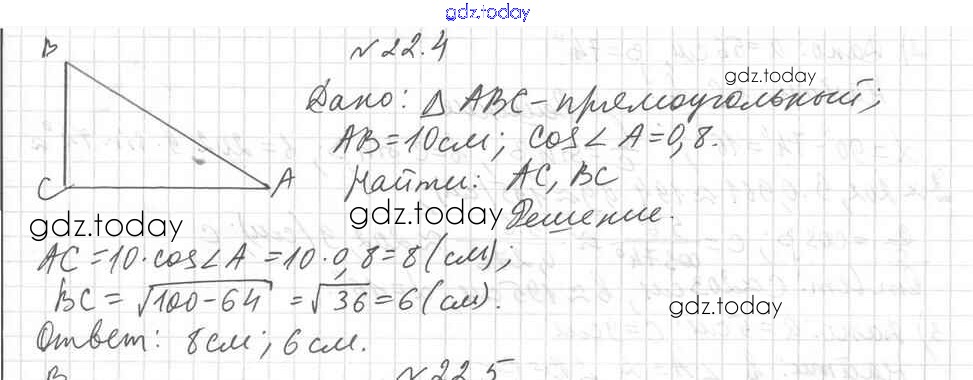 gdz.today
№22.4
B
gdz.today
Дано: Δ ABC - прямоугольный;
AB = 10 см; cos∠A = 0,8.
C A Найти: AC, BC
gdz.today gdz.today Решение.
AC = 10·cos∠A = 10·0,8 = 8 (см);
BC = √100-64 = √36 = 6 (см).
gdz.today
Ответ: 8см; 6см.
B №22.5